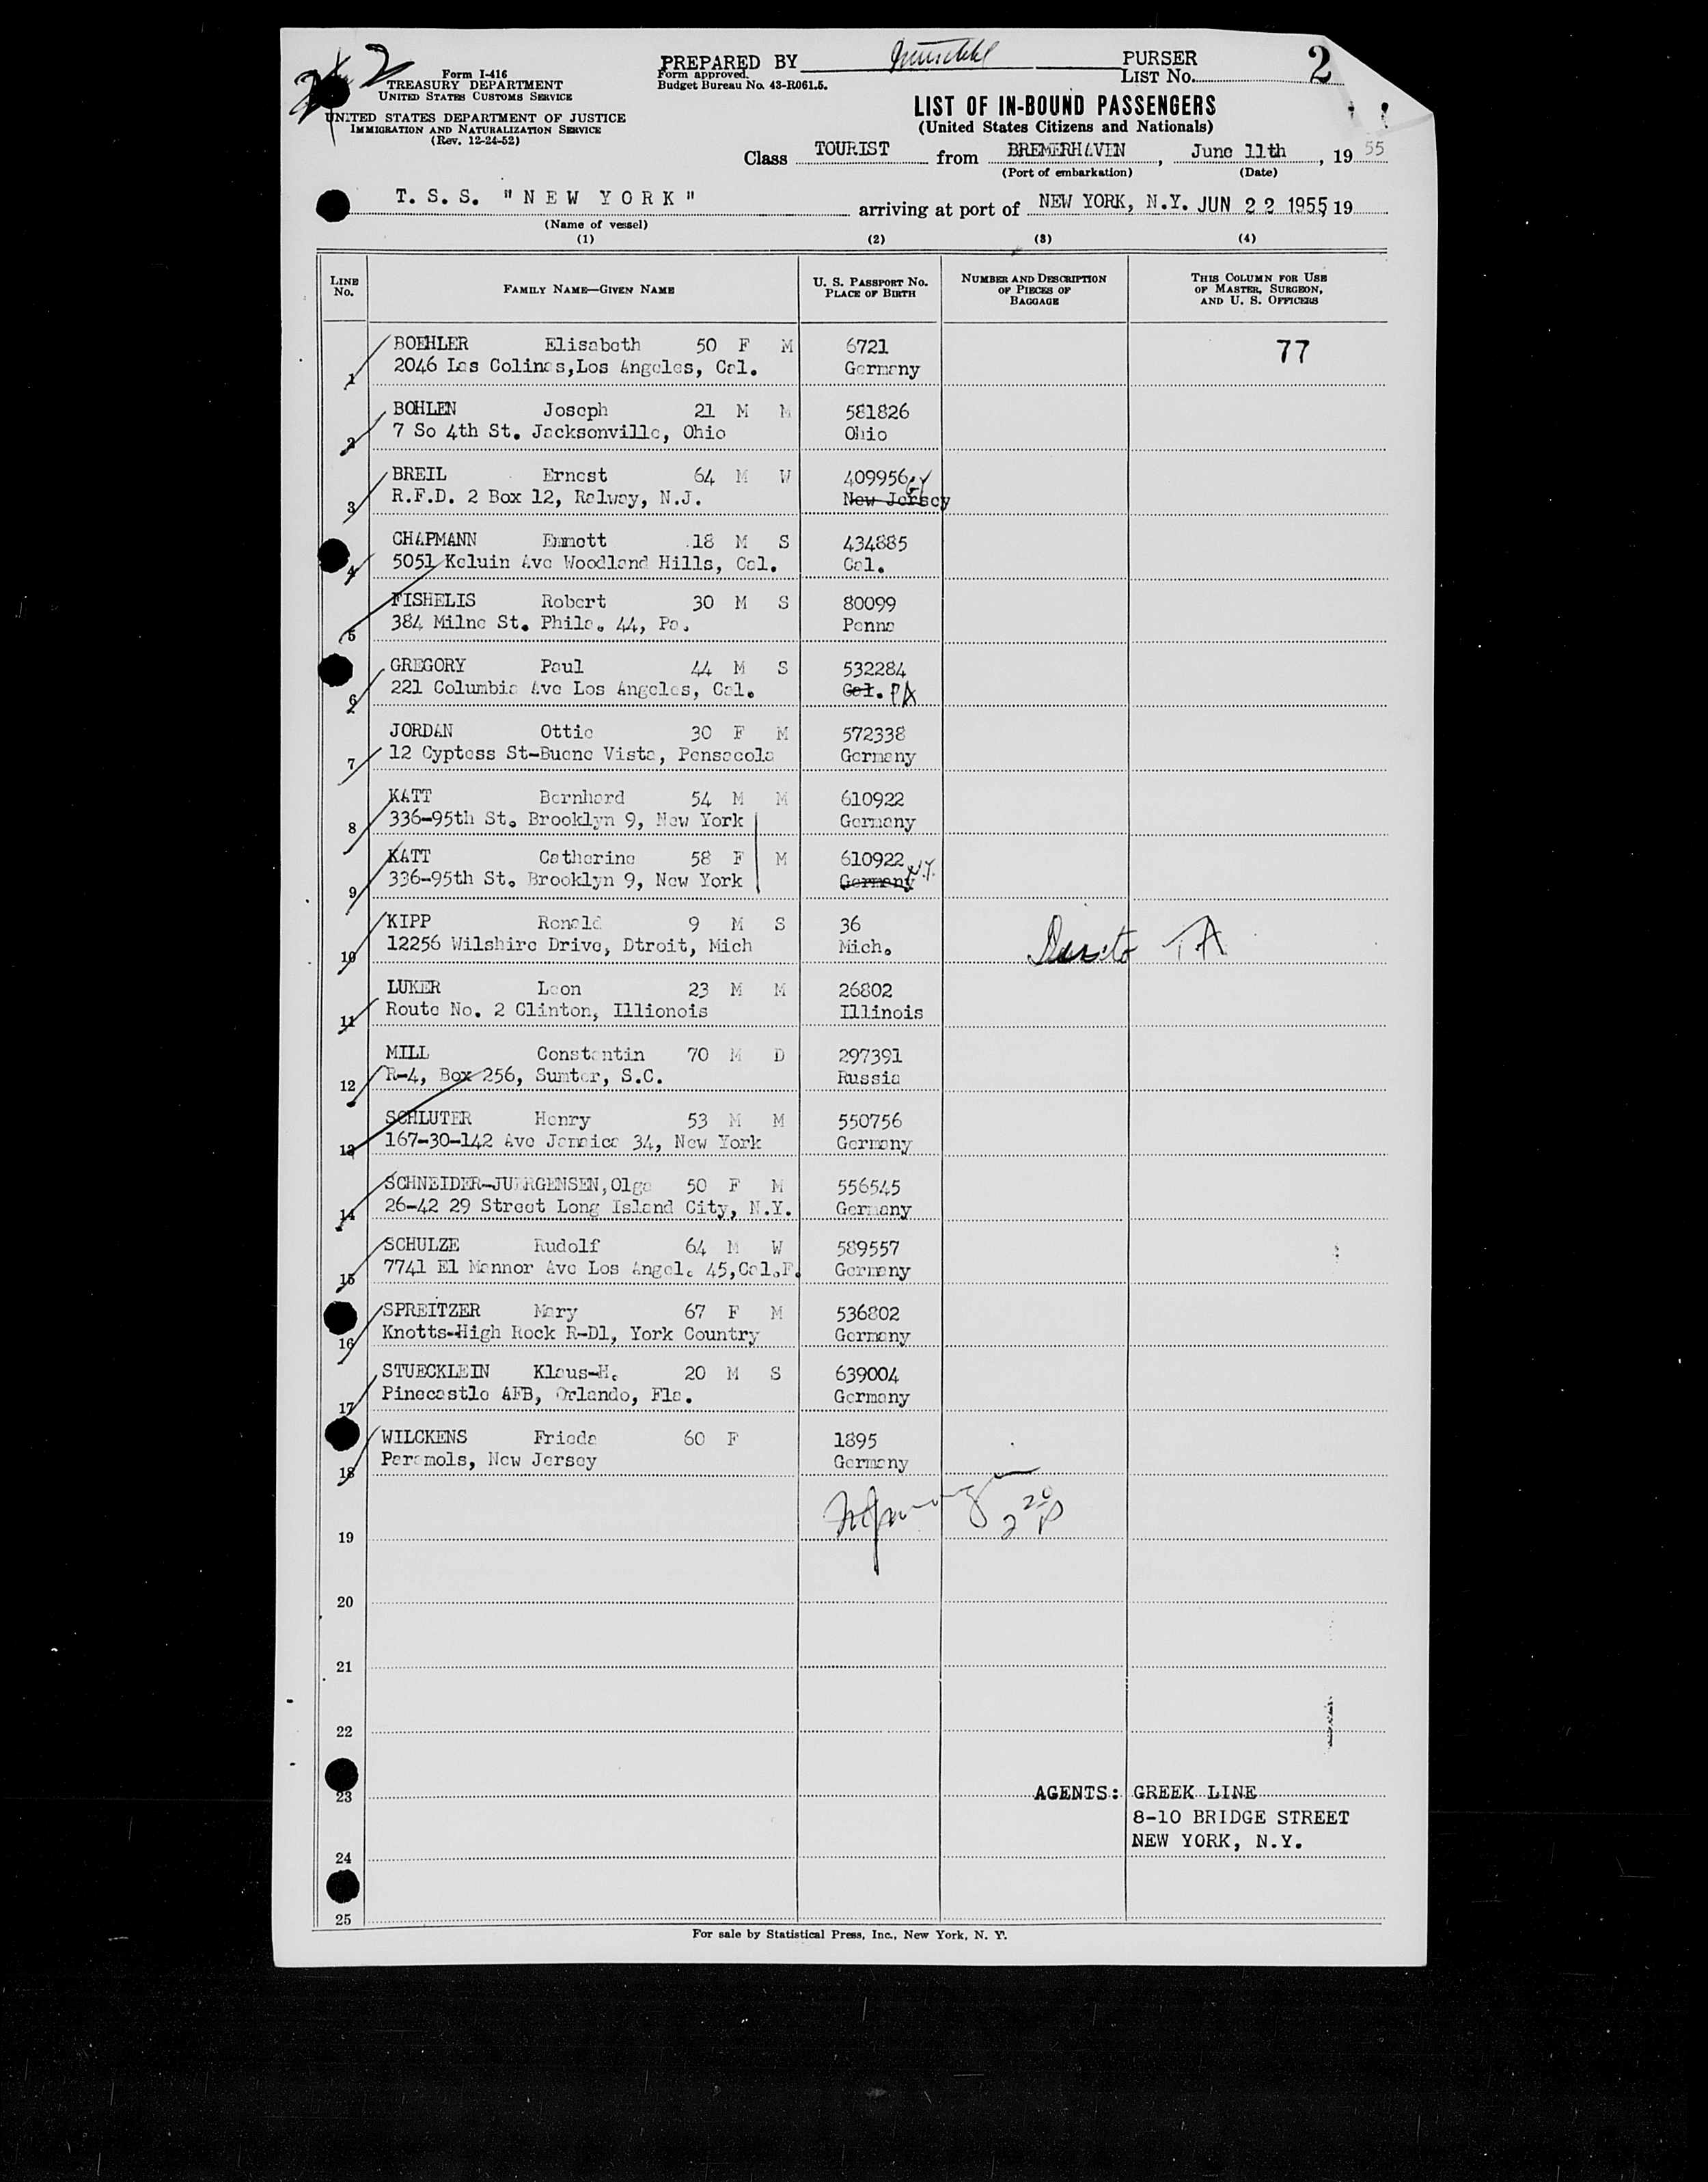 2
Form I-416
TREASURY DEPARTMENT
UNITED STATES CUSTOMS SERVICE
UNITED STATES DEPARTMENT OF JUSTICE
IMMIGRATION AND NATURALIZATION SERVICE
(Rev. 12-24-52)
PREPARED BY PURSER
Form approved.
Budget Bureau No. 43-R061.5.
LIST No. 2
LIST OF IN-BOUND PASSENGERS
(United States Citizens and Nationals)
Class TOURIST from BREMERHAVEN, June 11th, 19 55
(Port of embarkation) (Date)
T. S. S. "NEW YORK" arriving at port of NEW YORK, N.Y. JUN 22 1955 19
(Name of vessel)
(1) (2) (3) (4)
LINE No. FAMILY NAME—GIVEN NAME U. S. PASSPORT No. PLACE OF BIRTH NUMBER AND DESCRIPTION OF PIECES OF BAGGAGE THIS COLUMN FOR USE OF MASTER, SURGEON, AND U. S. OFFICERS
BOEHLER Elisabeth 50 F M 6721 77
1 2046 Las Colinas,Los Angeles, Cal. Germany
BOHLEN Joseph 21 M M 581826
2 7 So 4th St. Jacksonville, Ohio Ohio
BREIL Ernest 64 M W 409956 Gy
3 R.F.D. 2 Box 12, Ralway, N.J. New Jersey
CHAPMANN Emmett 18 M S 434885
4 5051 Keluin Ave Woodland Hills, Cal. Cal.
FISHELIS Robert 30 M S 80099
5 384 Milne St. Phila. 44, Pa. Penna
GREGORY Paul 44 M S 532284
6 221 Columbia Ave Los Angeles, Cal. Cal. PA
JORDAN Ottie 30 F M 572338
7 12 Cyptess St-Buena Vista, Pensacola Germany
KATT Bernhard 54 M M 610922
8 336-95th St. Brooklyn 9, New York Germany
KATT Catherine 58 F M 610922 N.Y.
9 336-95th St. Brooklyn 9, New York Germany
KIPP Ronald 9 M S 36
10 12256 Wilshire Drive, Dtroit, Mich Mich. TA
LUKER Leon 23 M M 26802
11 Route No. 2 Clinton, Illionois Illinois
MILL Constantin 70 M D 297391
12 R-4, Box 256, Sumter, S.C. Russia
SCHLUTER Henry 53 M M 550756
13 167-30-142 Ave Jamaica 34, New York Germany
SCHNEIDER-JUERGENSEN,Olga 50 F M 556545
14 26-42 29 Street Long Island City, N.Y. Germany
SCHULZE Rudolf 64 M W 589557
15 7741 El Mannor Ave Los Angel. 45,Cal.F. Germany
SPREITZER Mary 67 F M 536802
16 Knotts-High Rock R-D1, York Country Germany
STUECKLEIN Klaus-H. 20 M S 639004
17 Pinecastle AFB, Orlando, Fla. Germany
WILCKENS Frieda 60 F 1895
18 Paramols, New Jersey Germany
2 20 P
19
20
21
22
23 AGENTS: GREEK LINE
8-10 BRIDGE STREET
NEW YORK, N.Y.
24
25
For sale by Statistical Press, Inc., New York, N. Y.